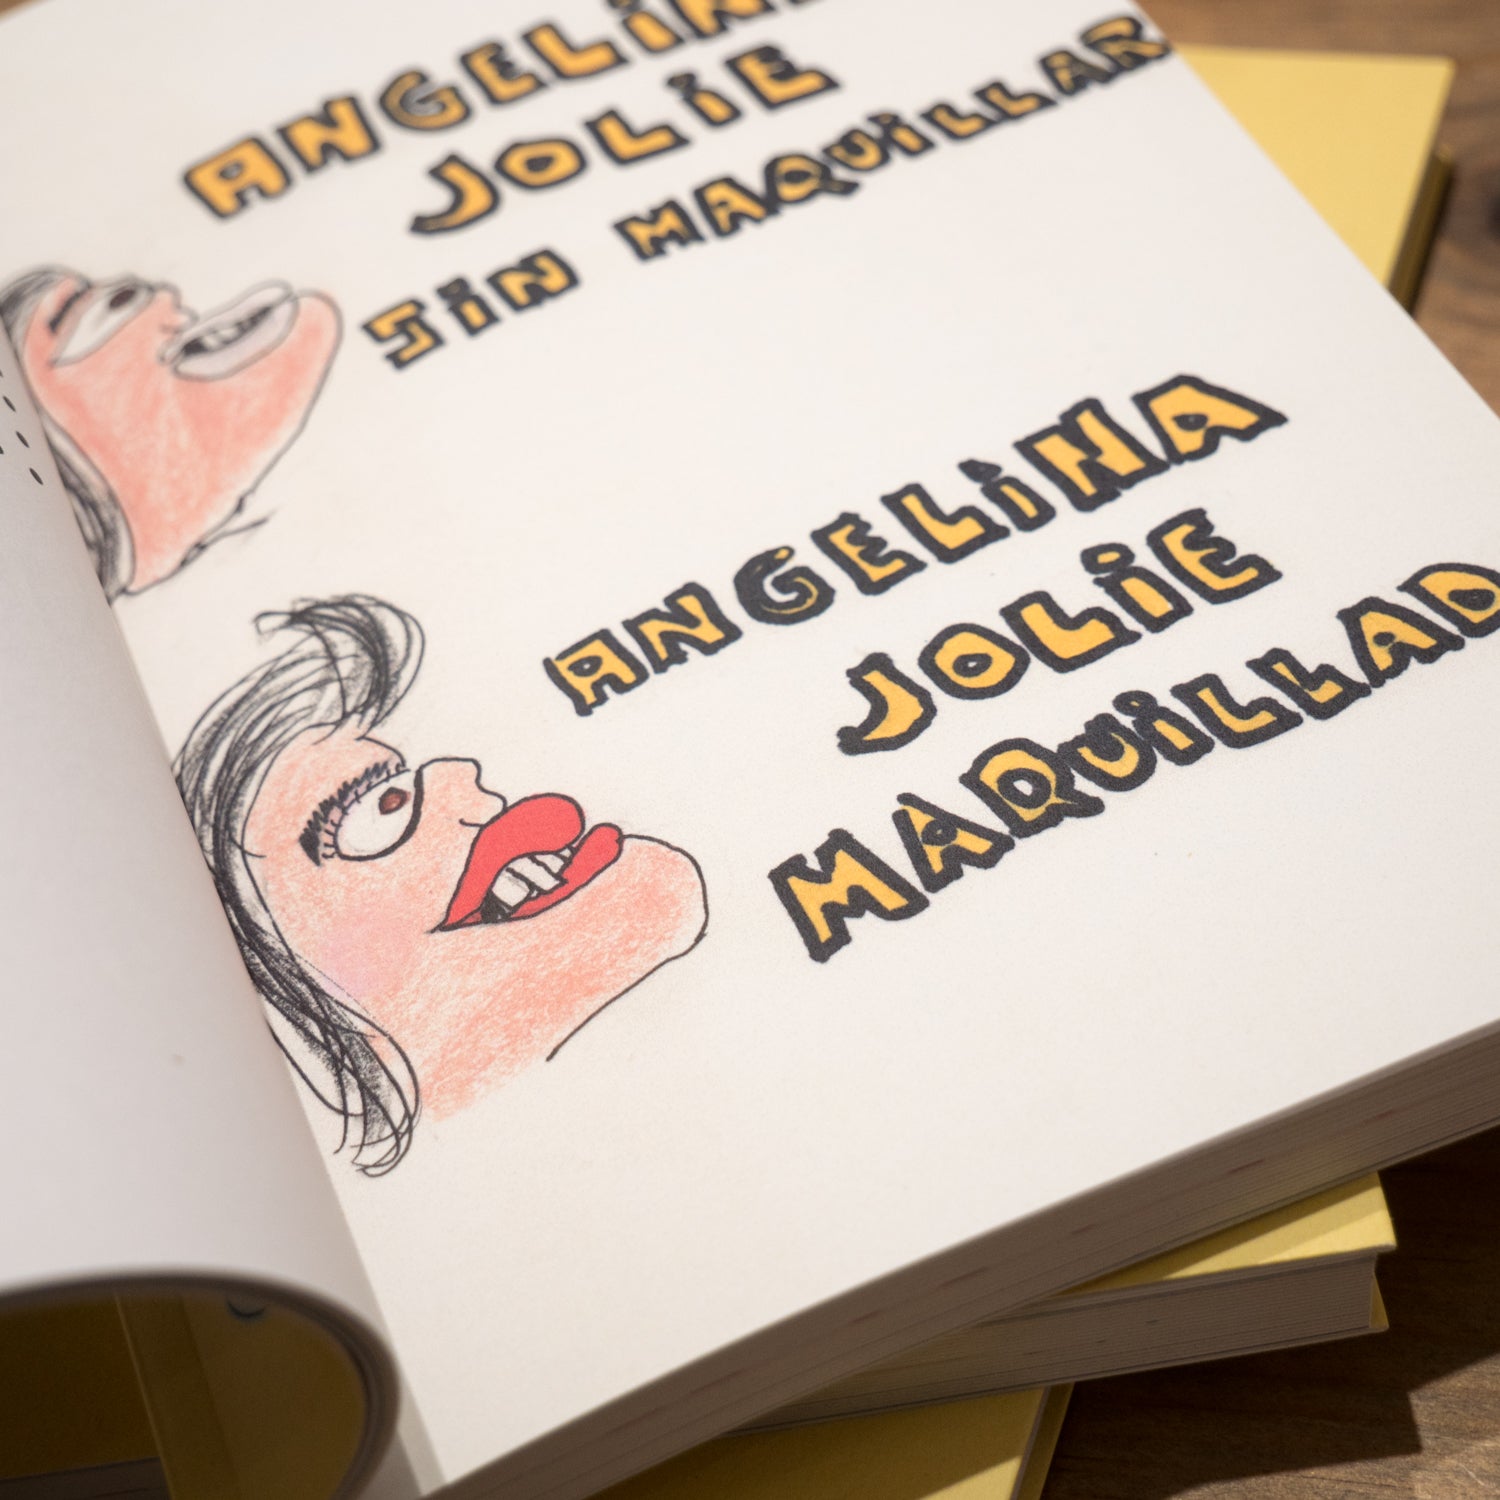 ANGELIN
JOLIE
SIN MAQUILLAR
ANGELINA
JOLIE
MAQUILLAD